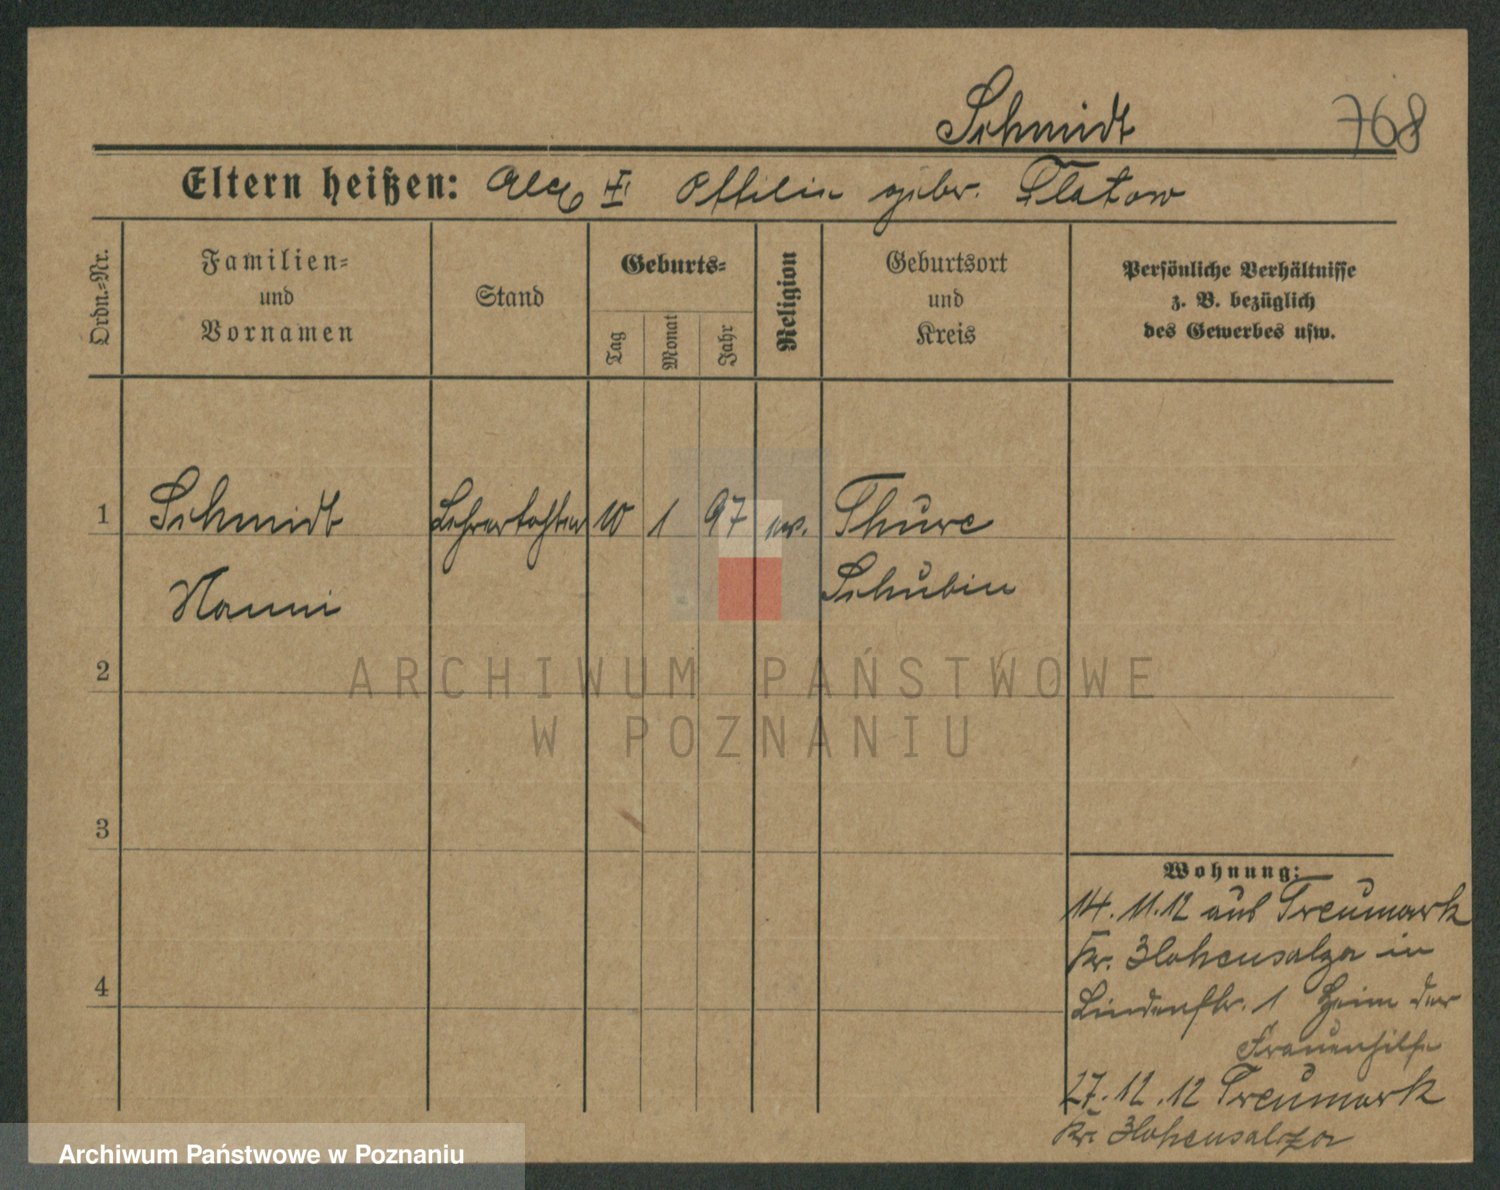 Schmidt
768
Eltern heißen: Alex Ottilie gebr. Flatow
Ordn.-Nr.
Familien-
und
Vornamen
Stand
Geburts-
Tag
Monat
Jahr
Religion
Geburtsort
und
Kreis
Persönliche Verhältnisse
z. B. bezüglich
des Gewerbes usw.
1 Schmidt Lehrertochter 10 1 97 ev. Thure
Nanni Schubin
2
3
4
Wohnung:
14. 11. 12 aus Treumark
Kr. Hohensalza in
Lindenstr. 1 Heim der
Frauenhilfe
27. 12. 12 Treumark
Kr. Hohensalza
ARCHIWUM PAŃSTWOWE
W POZNANIU
Archiwum Państwowe w Poznaniu